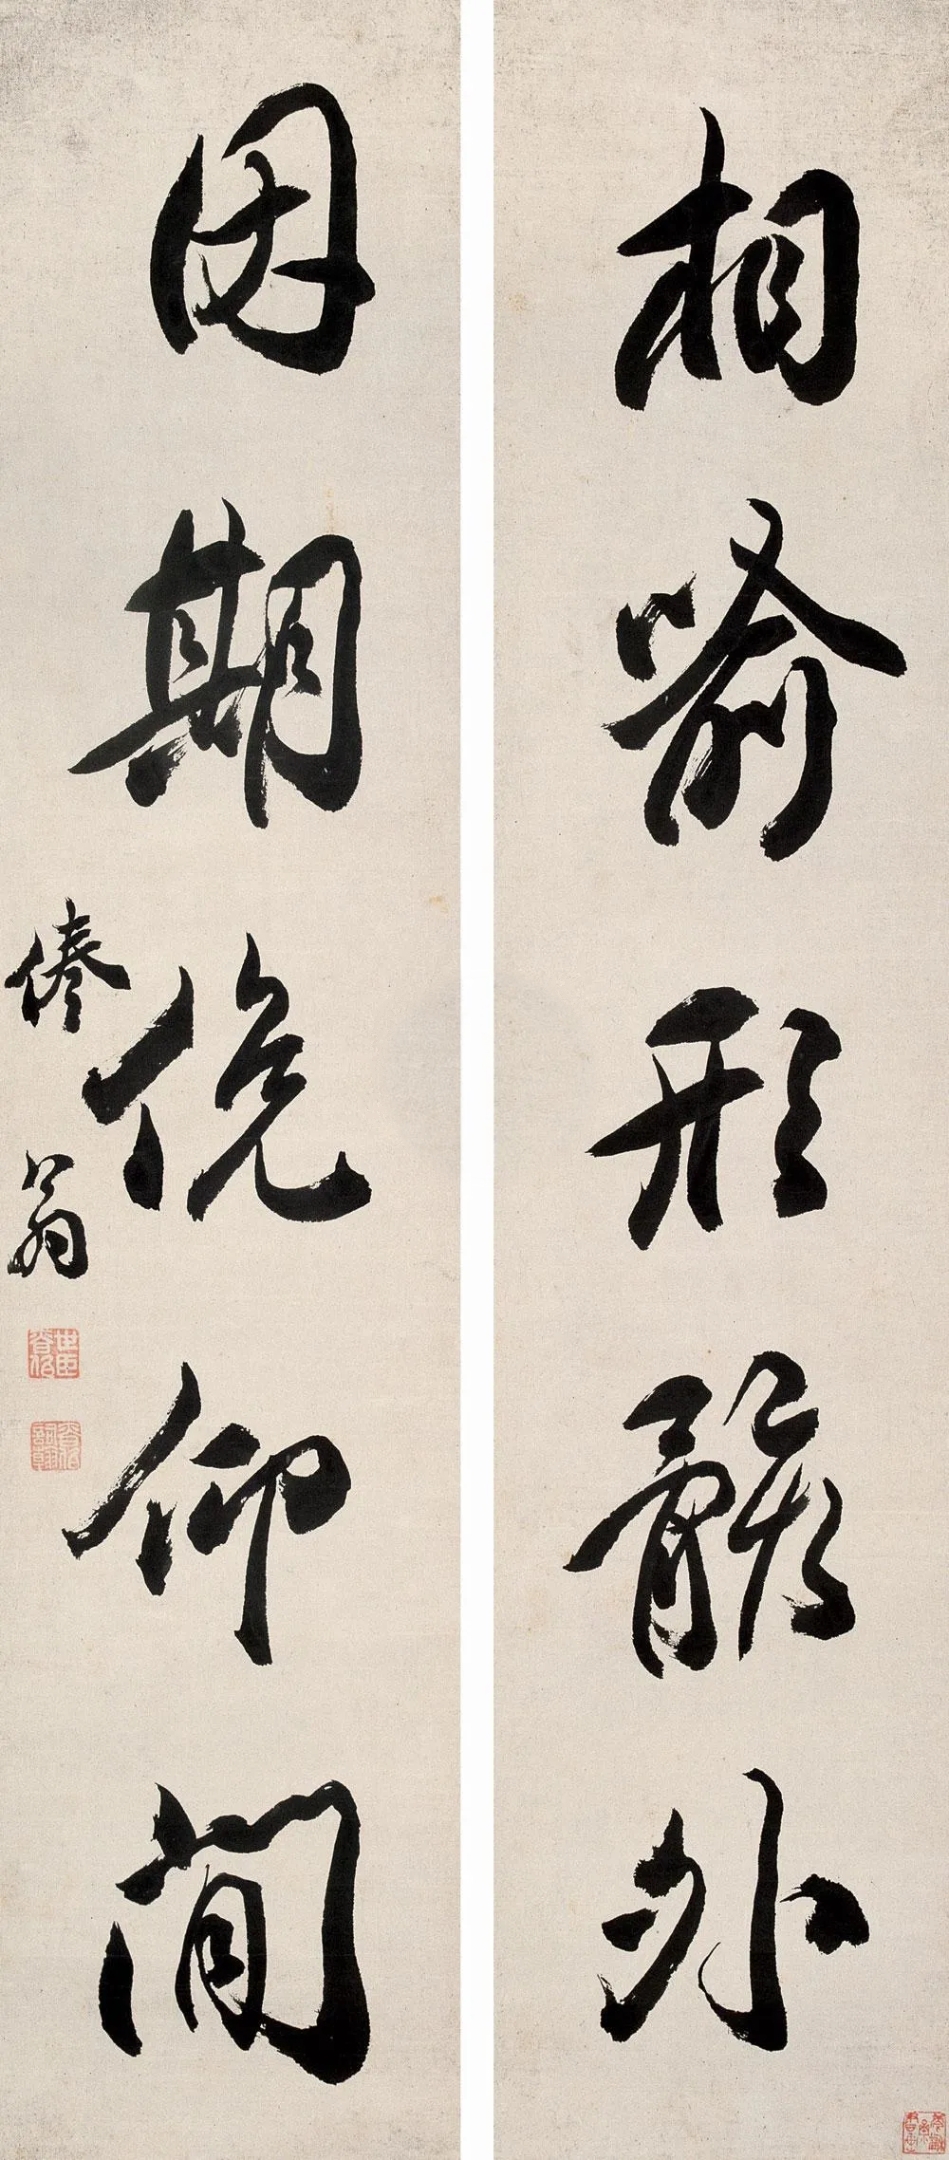 相喻形骸外
因期俛仰間
俸翁